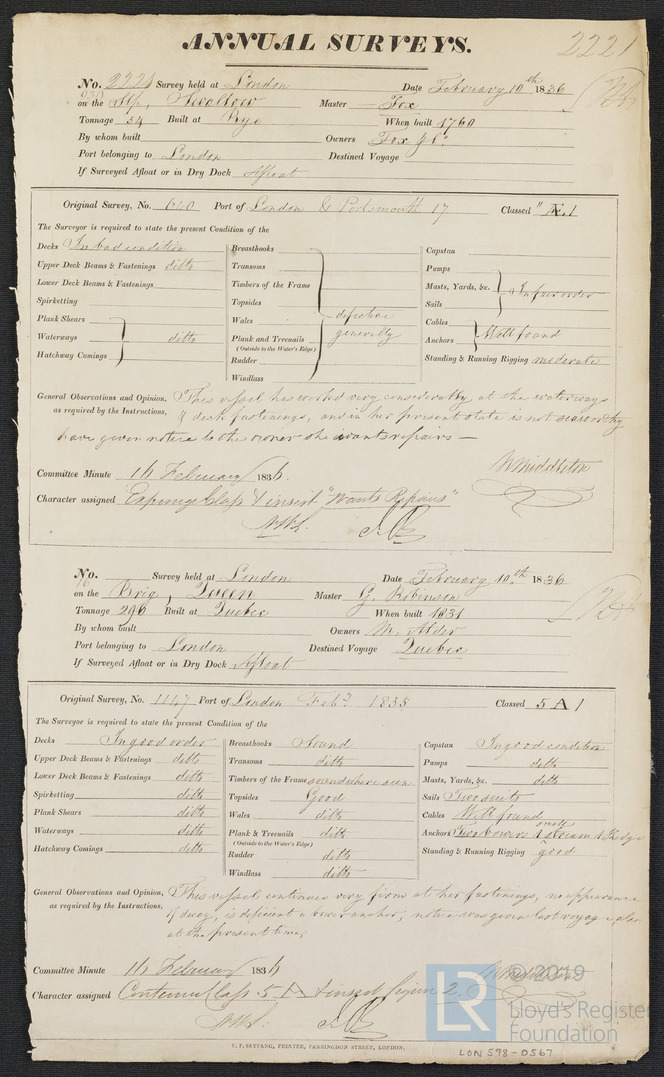 ANNUAL SURVEYS.
2221
No. 2221 Survey held at London Date February 10th 1836
on the Slp, Swallow Master Fox
Tonnage 54 Built at Rye When built 1760
By whom built Owners Fox & Co.
Port belonging to London Destined Voyage
If Surveyed Afloat or in Dry Dock Afloat
Original Survey, No. 640 Port of London & Portsmouth 17 Classed " Æ.1
The Surveyor is required to state the present Condition of the
Decks In bad condition Breasthooks Capstan
Upper Deck Beams & Fastenings ditto Transoms Pumps
Lower Deck Beams & Fastenings Timbers of the Frame Masts, Yards, &c. In fair order
Spirketting Topsides Sails
Plank Shears Wales defective Cables
Waterways ditto Plank and Treenails generally Anchors Well found
(Outside to the Water's Edge)
Hatchway Comings Rudder Standing & Running Rigging moderate
Windlass
General Observations and Opinion, This vessel has worked very considerably at the waterways
as required by the Instructions, & deck fastenings, and in her present state is not seaworthy
have given notice to the owner she wants repairs —
W Middleton
Committee Minute 16 February 1836.
Character assigned Expunge Class & insert "Wants Repairs"
No. Survey held at London Date February 10th 1836
on the Brig, Queen Master G. Robinson
Tonnage 296 Built at Quebec When built 1831
By whom built Owners M. Alder
Port belonging to London Destined Voyage Quebec
If Surveyed Afloat or in Dry Dock Afloat
Original Survey, No. 1147 Port of London Feby. 1835 Classed 5 A 1
The Surveyor is required to state the present Condition of the
Decks In good order Breasthooks Sound Capstan In good condition
Upper Deck Beams & Fastenings ditto Transoms ditto Pumps ditto
Lower Deck Beams & Fastenings ditto Timbers of the Frame sound where seen Masts, Yards, &c. ditto
Spirketting ditto Topsides Good Sails Two suits
Plank Shears ditto Wales ditto Cables Well found
Waterways ditto Plank & Treenails ditto Anchors Two bowers 1 small stream 1 Kedge
(Outside to the Water's Edge)
Hatchway Comings ditto Rudder ditto Standing & Running Rigging good
Windlass ditto
General Observations and Opinion, This vessel continues very firm at her fastenings, no appearance
as required by the Instructions, of decay, is deficient a bower anchor, notice was given last voyage, also
at the present time,
W Middleton
Committee Minute 16 February 1836
Character assigned Continue Class 5 A & insert figure 2.
© 2019
LR
Lloyd's Register
Foundation
C. F. SEYFANG, PRINTER, FARRINGDON STREET, LONDON.
LON 598-0567